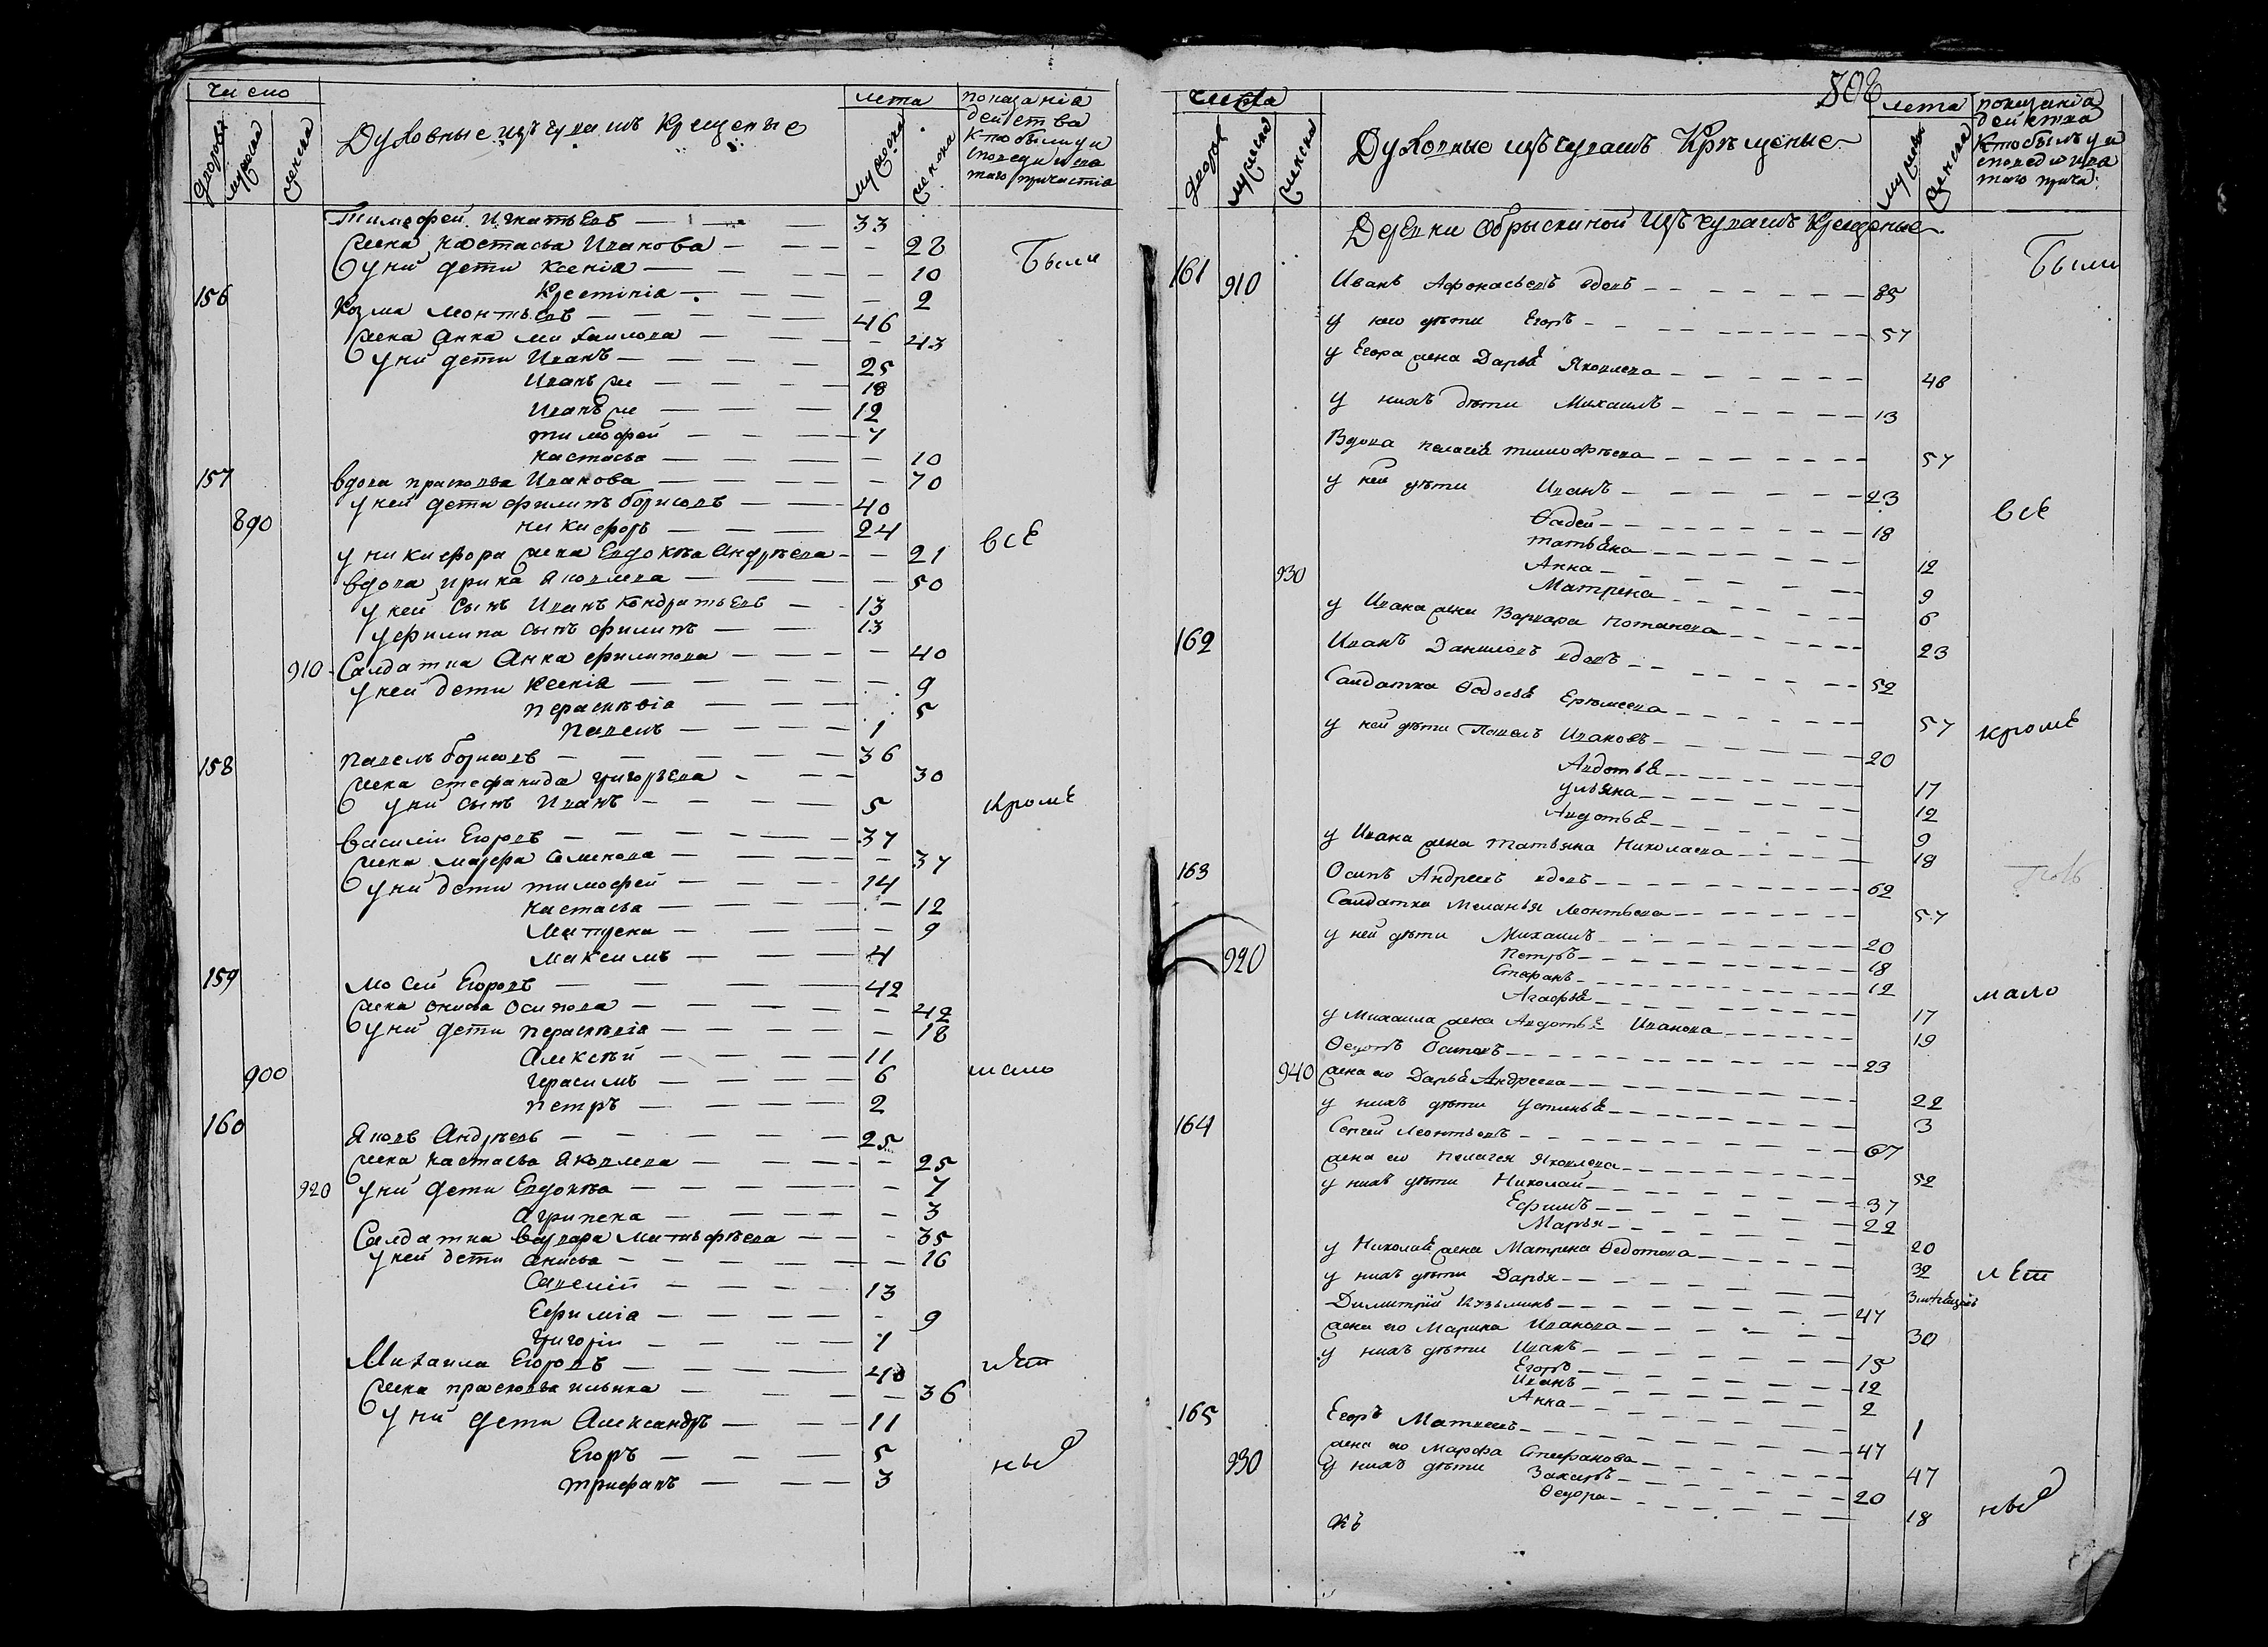 число
дворовъ
мужска
женска
Духовные изъ чувашъ крещеные
лета
мужска
женска
показанiа
действа
кто были у и
споведи и свя
таго причастiа
Тимофей Игнатьевъ — 33
жена настасья Иванова — 28
у них дети ксенiя — 10
Крестинiа — 2
156 Козма Леонтьевъ — 46
жена Анна михаилова — 43
у них дети Иванъ — 25
Иванъ же — 18
Иванъ же — 12
тимофей — 7
настасья — 10
157 вдова прасковья Иванова — 70
у ней дети филипъ борисовъ — 40
890 никифоръ — 24
у никифора жена Евдокѣа Андрѣева — 21
вдова ирина яковлева — 50
у ней сынъ Иванъ кондратьевъ — 13
у филипа сынъ филипъ — 13
910 Салдатка Анна филипова — 40
у ней дети ксенiя — 9
перасковiа — 5
павелъ — 1
158 павелъ борисовъ — 36
жена стефанида григорьева — 30
у них сынъ Иванъ — 5
василiй Егоровъ — 37
жена марфа семенова — 37
у них дети тимофей — 14
настасья — 12
Матрена — 9
максимъ — 4
159 мосей Егоровъ — 42
жена онисья осипова — 42
у них дети перасковiа — 18
Алексѣй — 11
900 герасимъ — 6
петръ — 2
160 яковъ Андрѣевъ — 25
жена настасья яковлева — 25
920 у них дети Евдокѣа — 7
Агрипена — 3
Салдатка варвара матвѣева — 35
у ней дети анисья — 16
Савелiй — 13
Ефимiа — 9
григорiй — 1
Михаила Егоровъ — 40
жена прасковья ильина — 36
у них дети Александръ — 11
Егоръ — 5
трифанъ — 3
Были
всЕ
кромЕ
мало
лЕт
ныхъ
числа
дворовъ
мужска
женска
Духовные изъ чувашъ Крѣщеные
508
лета
мужска
женска
показанiа
действа
Кто былъ у и
споведи и свя
таго прича:
Деревни Обрыскиной Изъ чувашъ Крещеные
161 910 Иванъ Афонасьевъ вдовъ — 85
у него дѣти Егоръ — 57
у Егора жена Дарья Яковлева — 48
у нихъ дѣти Михаилъ — 13
Вдова пелагея тимофѣева — 57
у ней дѣти Иванъ — 23
Ѳадей — 18
татьяна — 12
930 Анна — 9
Матрена — 6
у Ивана жена Варвара потапова — 23
162 Иванъ Даниловъ вдовъ — 52
Салдатка Ѳедосья Ерѣмеева — 57
у ней дѣти Павелъ Ивановъ — 20
Авдотья — 17
ульяна — 12
Авдотья — 9
у Ивана жена татьяна Николаева — 18
163 Осипъ Андреевъ вдовъ — 62
Салдатка Меланья леонтьева — 57
у ней дѣти Михаилъ — 20
920 петръ — 18
Стефанъ — 12
Агафья — 17
у михаила жена Авдотья Иванова — 19
Ѳедотъ Осиповъ — 23
940 жена его Дарья Андреева — 22
у нихъ дѣти устинья — 3
164 Сергей леонтьевъ — 67
жена его пелагея Яковлева — 52
у нихъ дѣти Николай — 37
Ефимъ — 22
Марья — 20
у Николая жена Матрена Ѳедотова — 32
у нихъ дѣти Дарья —
Димитрий Кузьминъ — 47
жена его Марина Иванова — 30
у нихъ дѣти Иванъ — 15
Егоръ — 12
Иванъ — 2
Анна — 1
165 Егоръ Матвеевъ — 47
жена его Марфа Стефанова — 47
930 у нихъ дѣти Захаръ — 20
Ѳедора — 18
Были
всЕ
кромЕ
мало
лЕт
ныхъ